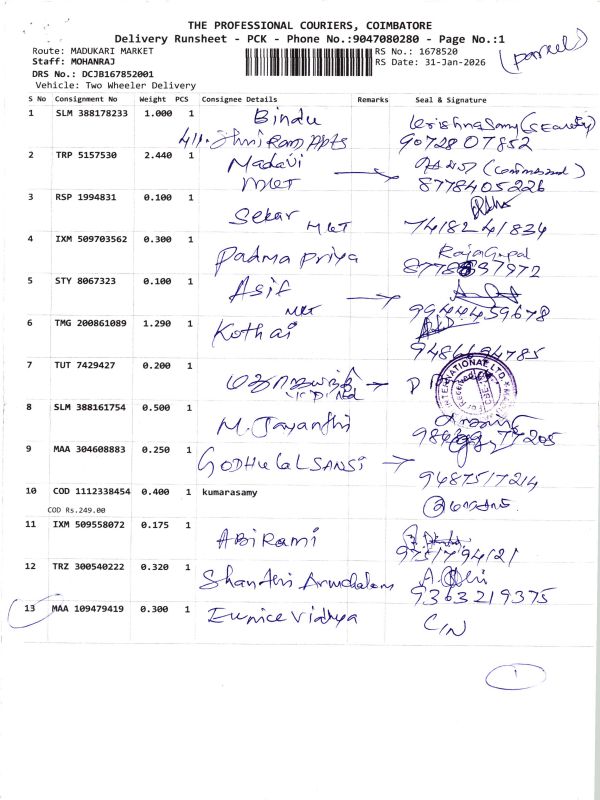 THE PROFESSIONAL COURIERS, COIMBATORE
Delivery Runsheet - PCK - Phone No.:9047080280 - Page No.:1
(parcel)
Route: MADUKARI MARKET
RS No.: 1678520
Staff: MOHANRAJ
RS Date: 31-Jan-2026
DRS No.: DCJB167852001
Vehicle: Two Wheeler Delivery
S No Consignment No Weight PCS Consignee Details Remarks Seal & Signature
1 SLM 388178233 1.000 1 Bindu Krishnasamy (Security)
411. Shri Ram Appts 9072807852
2 TRP 5157530 2.440 1 Madavi
MKT 8778405226
3 RSP 1994831 0.100 1
Sekar MKT 74182 41834
4 IXM 509703562 0.300 1 Rajagopal
Padma Priya
5 STY 8067323 0.100 1 Asif
MKT 9944459678
6 TMG 200861089 1.290 1 Kothai
9486694785
7 TUT 7429427 0.200 1
8 SLM 388161754 0.500 1
M. Jayanthi
9 MAA 304608883 0.250 1
GODHULAL SANSI 9487517214
10 COD 1112338454 0.400 1 kumarasamy
COD Rs.249.00
11 IXM 509558072 0.175 1
ABi Rami 9751794121
12 TRZ 300540222 0.320 1
Shanthi Arunchalam 9363219375
13 MAA 109479419 0.300 1 Eunice Vidhya
C/N
1